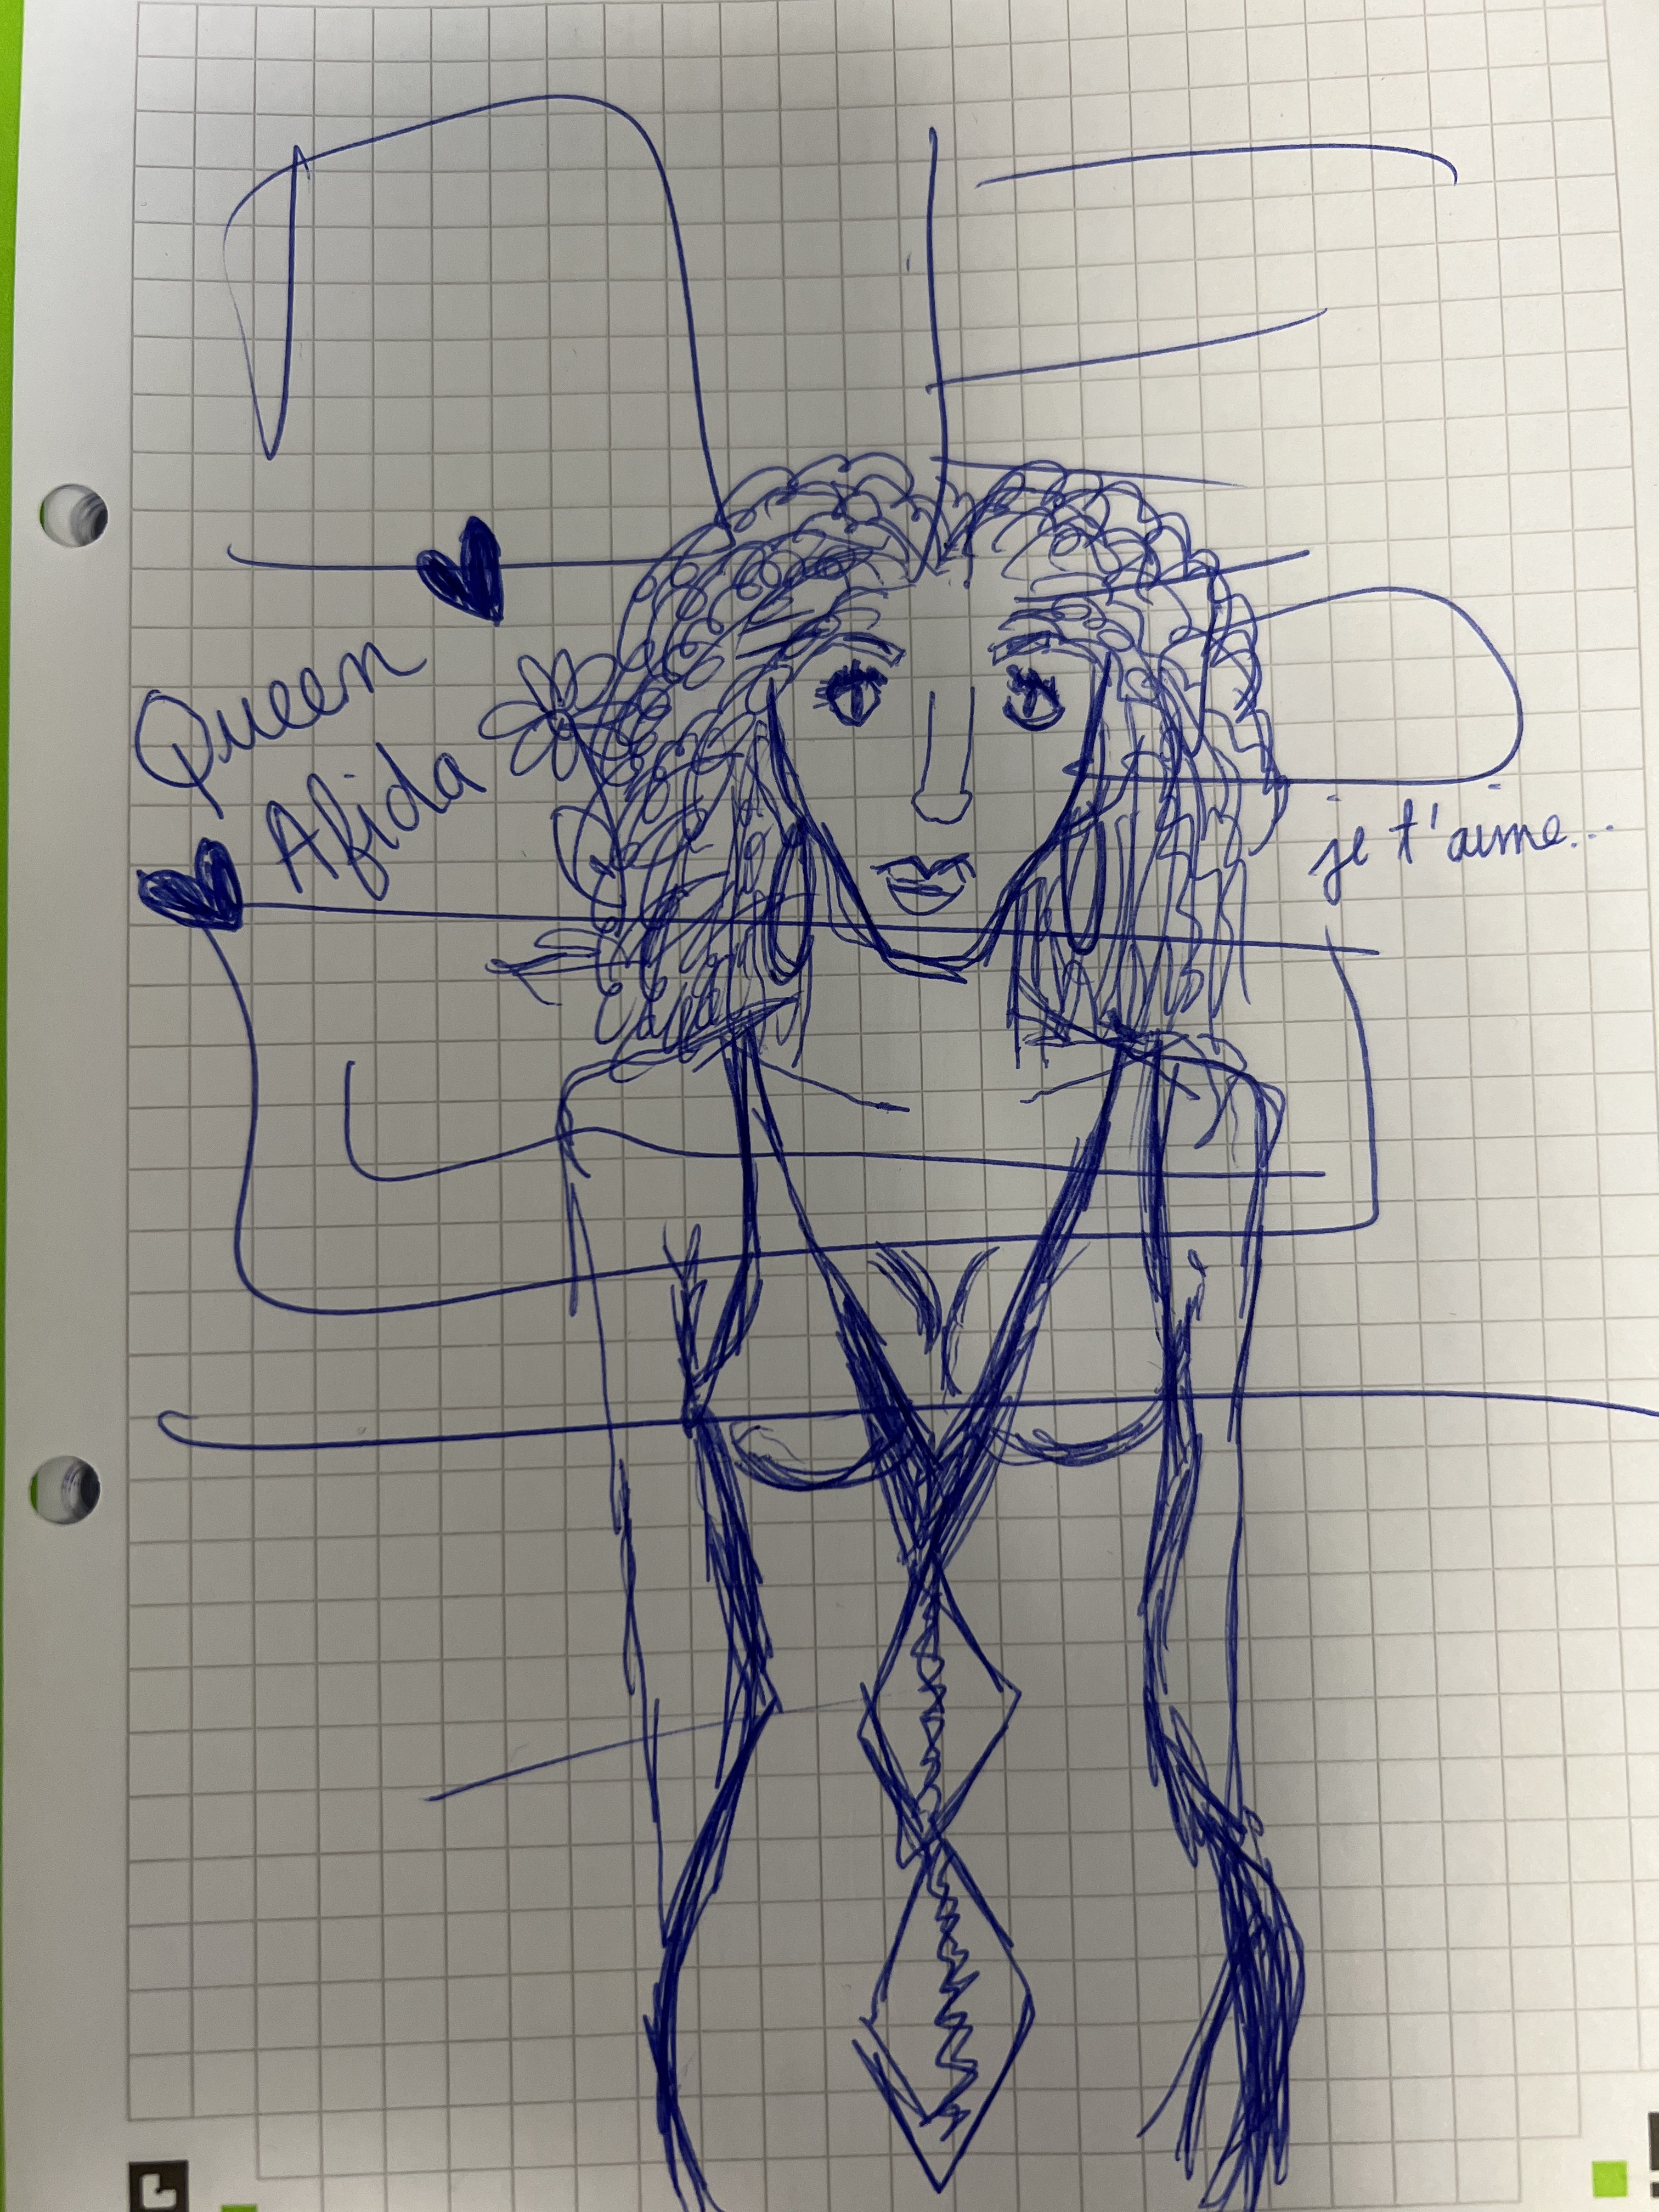 Queen
Afida
je t'aime...